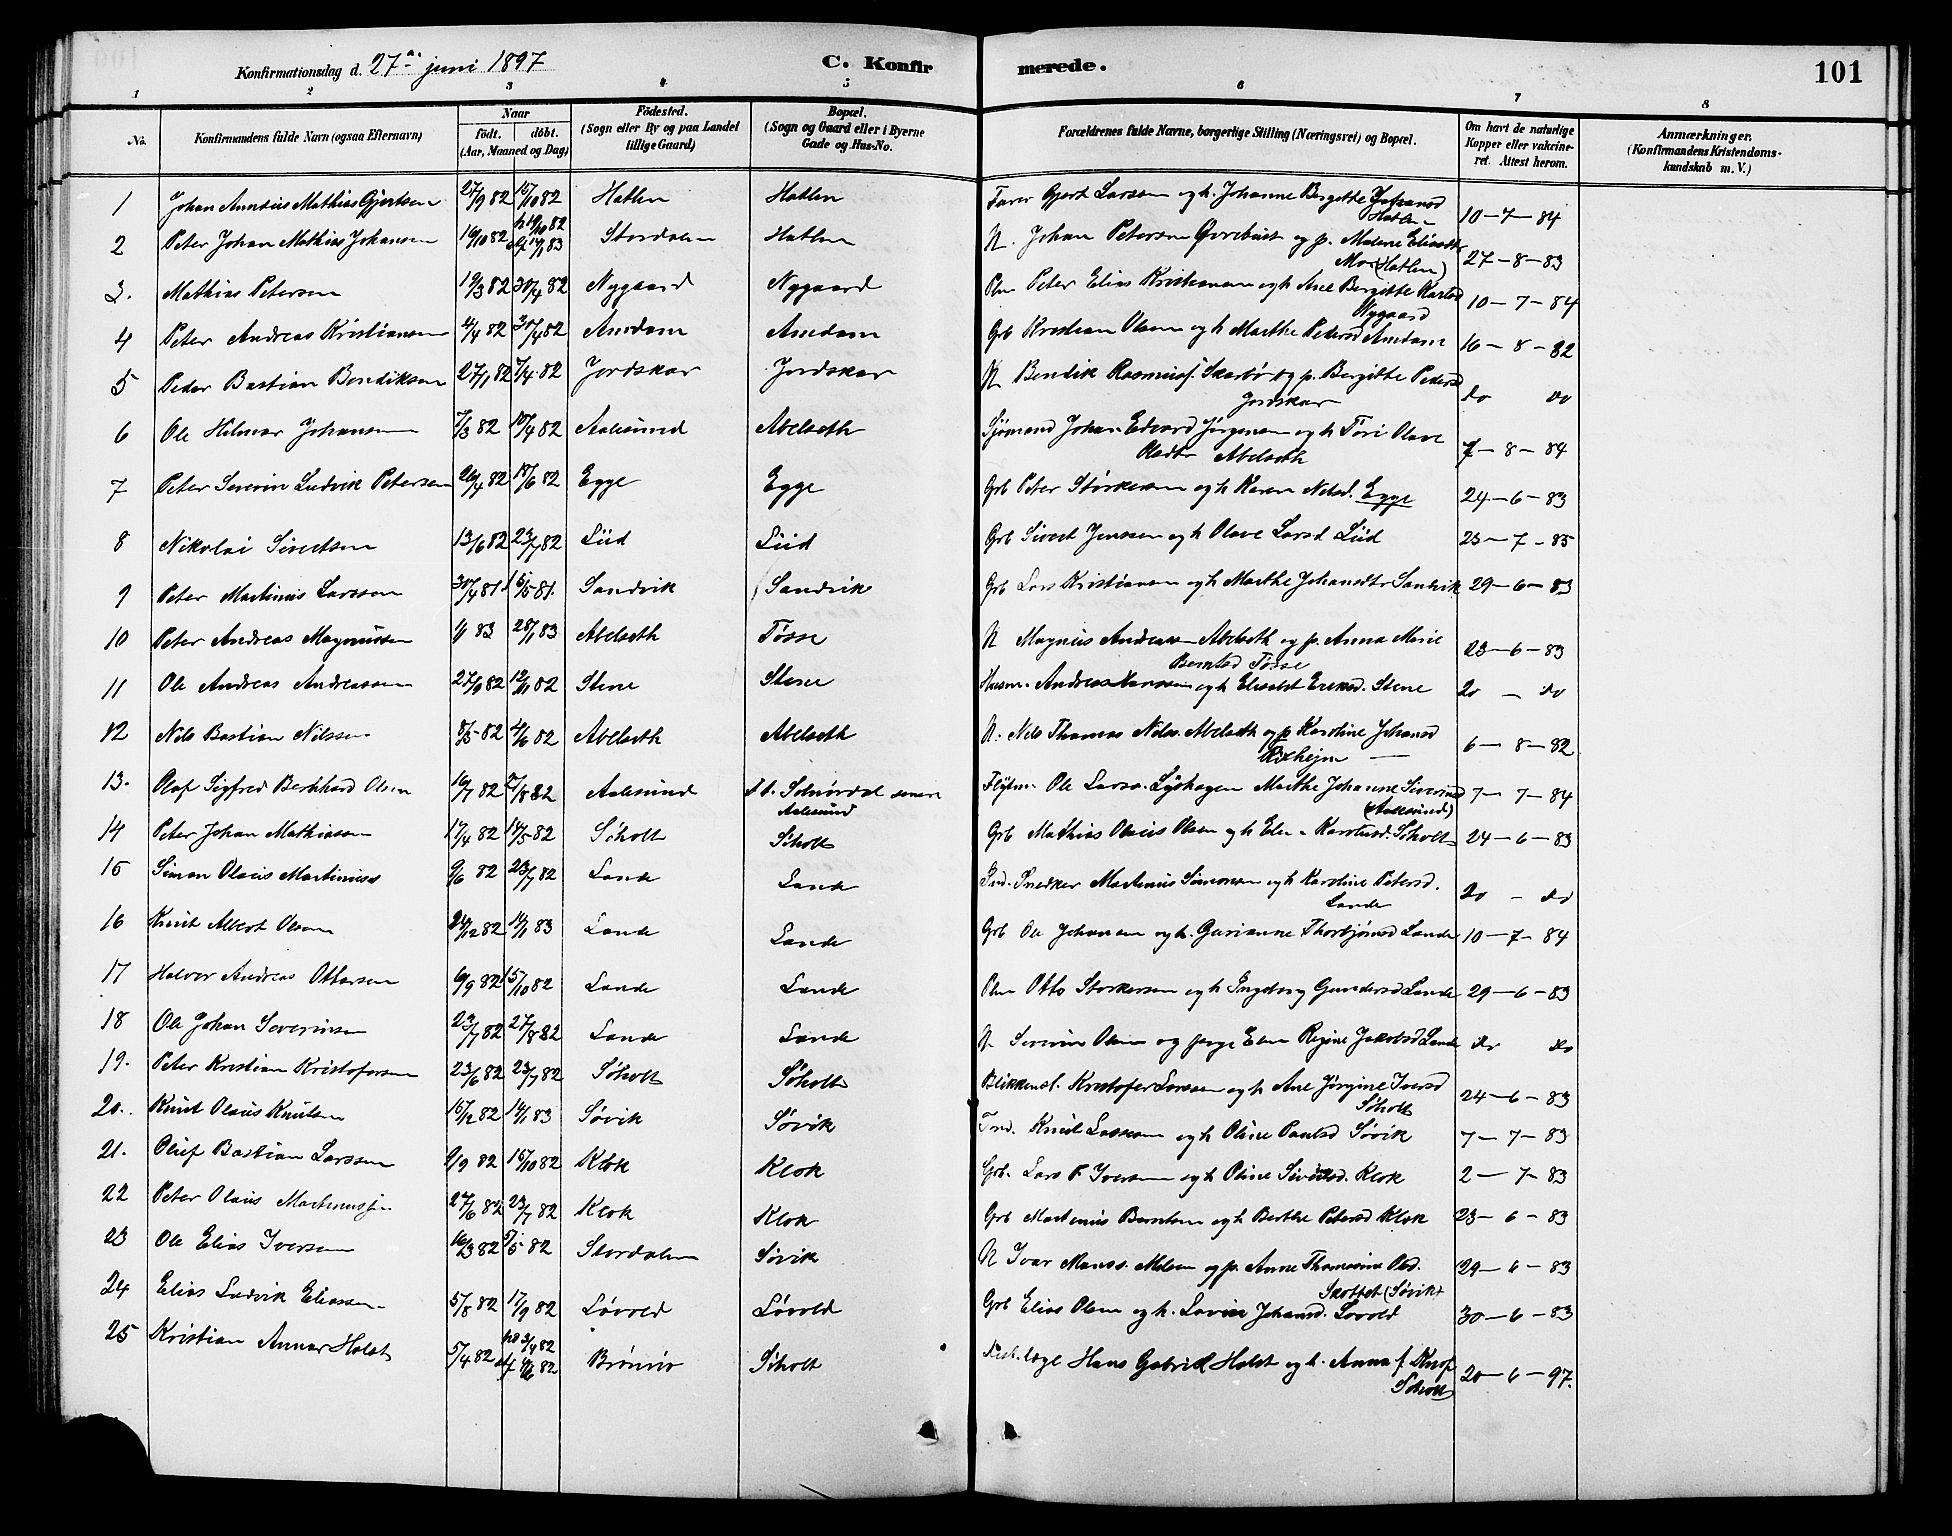 Konfirmationsdag d. 27de juni 1897 C. Konfirmerede. 101
1 2 3 4 5 6 7 8
No. Konfirmandens fulde Navn (ogsaa Efternavn) Naar födt. döbt. (Aar, Maaned og Dag) Födested. (Sogn eller By og paa Landet tillige Gaard) Bopæl. (Sogn og Gaard eller i Byerne Gade og Hus-No. Forældrenes fulde Navne, borgerlige Stilling (Næringsvei) og Bopæl. Om havt de naturlige Kopper eller vakcineret. Attest herom. Anmærkninger. (Konfirmandens Kristendomskundskab m. V.)
1 Johan Mathias Gjertsen 27/9 82 15/10 82 Hatlen Hatlen Gjert Larssen og h. Johanne Bergitte Hatlen 10-7-84
2 Peter Johan Mathias Johansen 16/10 82 Stordalen Hatlen N. Johan Petersen og p. Malene Eliasdtr (Hatlen) 27-8-83
3. Mathias Petersen 19/3 82 30/4 82 Nygaard Nygaard Peter Elias Kristiansen og h Ane Bergitte Nygaard 10-7-84
4 Peter Andreas Kristiansen 4/4 82 30/4 82 Amdam Amdam Grb Kristian Olsen og h Marthe Petersd Amdam 16-8-82
5 Peder Bastian Bendiksen 27/1 82 7/4 82 Jordskar Jordskar N Bendik Rasmuss. Skarbø og p. Bergitte Pedersd Jordskar do do
6 Ole Hilmar Johansen 7/3 82 10/4 82 Aalesund Abelseth Sjømand Johan Edvard Jørgensen og h Olave Olsdtr Abelseth 7-8-84
7 Peter Severin Ludvik Petersen 26/4 82 18/6 82 Egge Egge Grb Peter Størkersen og h Karen Nilsd. Egge 24-6-83
8 Nikolai Sivertsen 13/6 82 23/7 82 Liid Liid Grb Sivert Jenssen og h Olave Larsd Liid 23-7-85
9 Peter Martinus Larssen 30/4 81 15/5 81. Sandvik Sandvik Grb Lars Kristiansen og h Marthe Johansdtr Sandvik 29-6-83
10 Peter Andreas Magnussen 1/1 83 28/1 83 Abelseth Tøsse N Magnus Andreassen Abelseth og p. Anna Marie Berntsd Tøsse 23-6-83
11 Ole Andreas Andreassen 12/11 82 Stene Stene Husm. Andreas Hanssen og h Elisabet Eriksd. Stene do - do
12 Nils Bastian Nilssen 8/5 82 4/6 82 Abelseth Abelseth N. Nils Thomas Nilss. Abelseth og p Karoline Johansd 6-8-82
13. Olaf Sigfred Bernhard Olsen 16/7 82 27/8 82 Aalesund Aalesund Ole Larss. Marthe Johanne Siverinsd (Aalesund) 7-7-84
14 Peter Johan Mathiassen 17/4 82 14/5 82 Søholt Søholt Grb Mathias Olaus Olsen og h Elen Karstensd. Søholt 24-6-83
15 Simon Olaus Martinuss 9/6 82 23/7 82 Lande Lande Ind. Snedker Martinus Simonsen og h Karoline Petersd. Lande do - do
16 Knut Albert Olsen 24/12 82 14/1 83 Lande Lande Grb Ole Johansen og h. Gurianne Thorbjørnsd Lande 10-7-84
17 Halvor Andreas Ottersen 6/9 82 15/10 82 Lande Lande Otto Storkersen og h Ingeborg Gundersd Lande 29-6-83
18 Ole Johan Severinsen 23/7 82 27/8 82 Lande Lande N. Severin Olsen og pige Elen Regine Jakobsd Lande do do
19. Peter Kristian Kristofersen 23/6 82 23/7 82 Søholt Søholt Blikkensl. Kristofer Larssen og h Ane Jørgine Iversd Søholt 24-6-83
20. Knut Olaus Knutsen 16/12 82 14/1 83 Søvik Søvik Ind. Knut Lassesen og h Oline Paulsd Søvik 7-7-83
21. Oluf Bastian Larssen 9/9 82 15/10 82 Klok Klok Grb. Lars P Iversen og h Oline Klok 2-7-83
22 Peter Olaus Martinussen 27/6 82 23/7 82 Klok Klok Grb Martinus Berntsen og h Berthe Petersd Klok 23-6-83
23 Ole Elias Iversen 16/3 82 82 Stordalen Søvik N Ivar Monss. Melsen og p. Anne Thomasine Olsd. Skottet (Søvik) 29-6-83
24 Elias Ludvik Eliassen 5/8 82 17/9 82 Løvold Løvold Grb Elias Olsen og h. Lovise Johansd. Løvold 30-6-83
25 Kristian Annar Holst 5/4 82 Brønnø Søholt Distr.læge Hans Gabriel Holst og h. Anna f. Knoph Søholt 20-6-97.